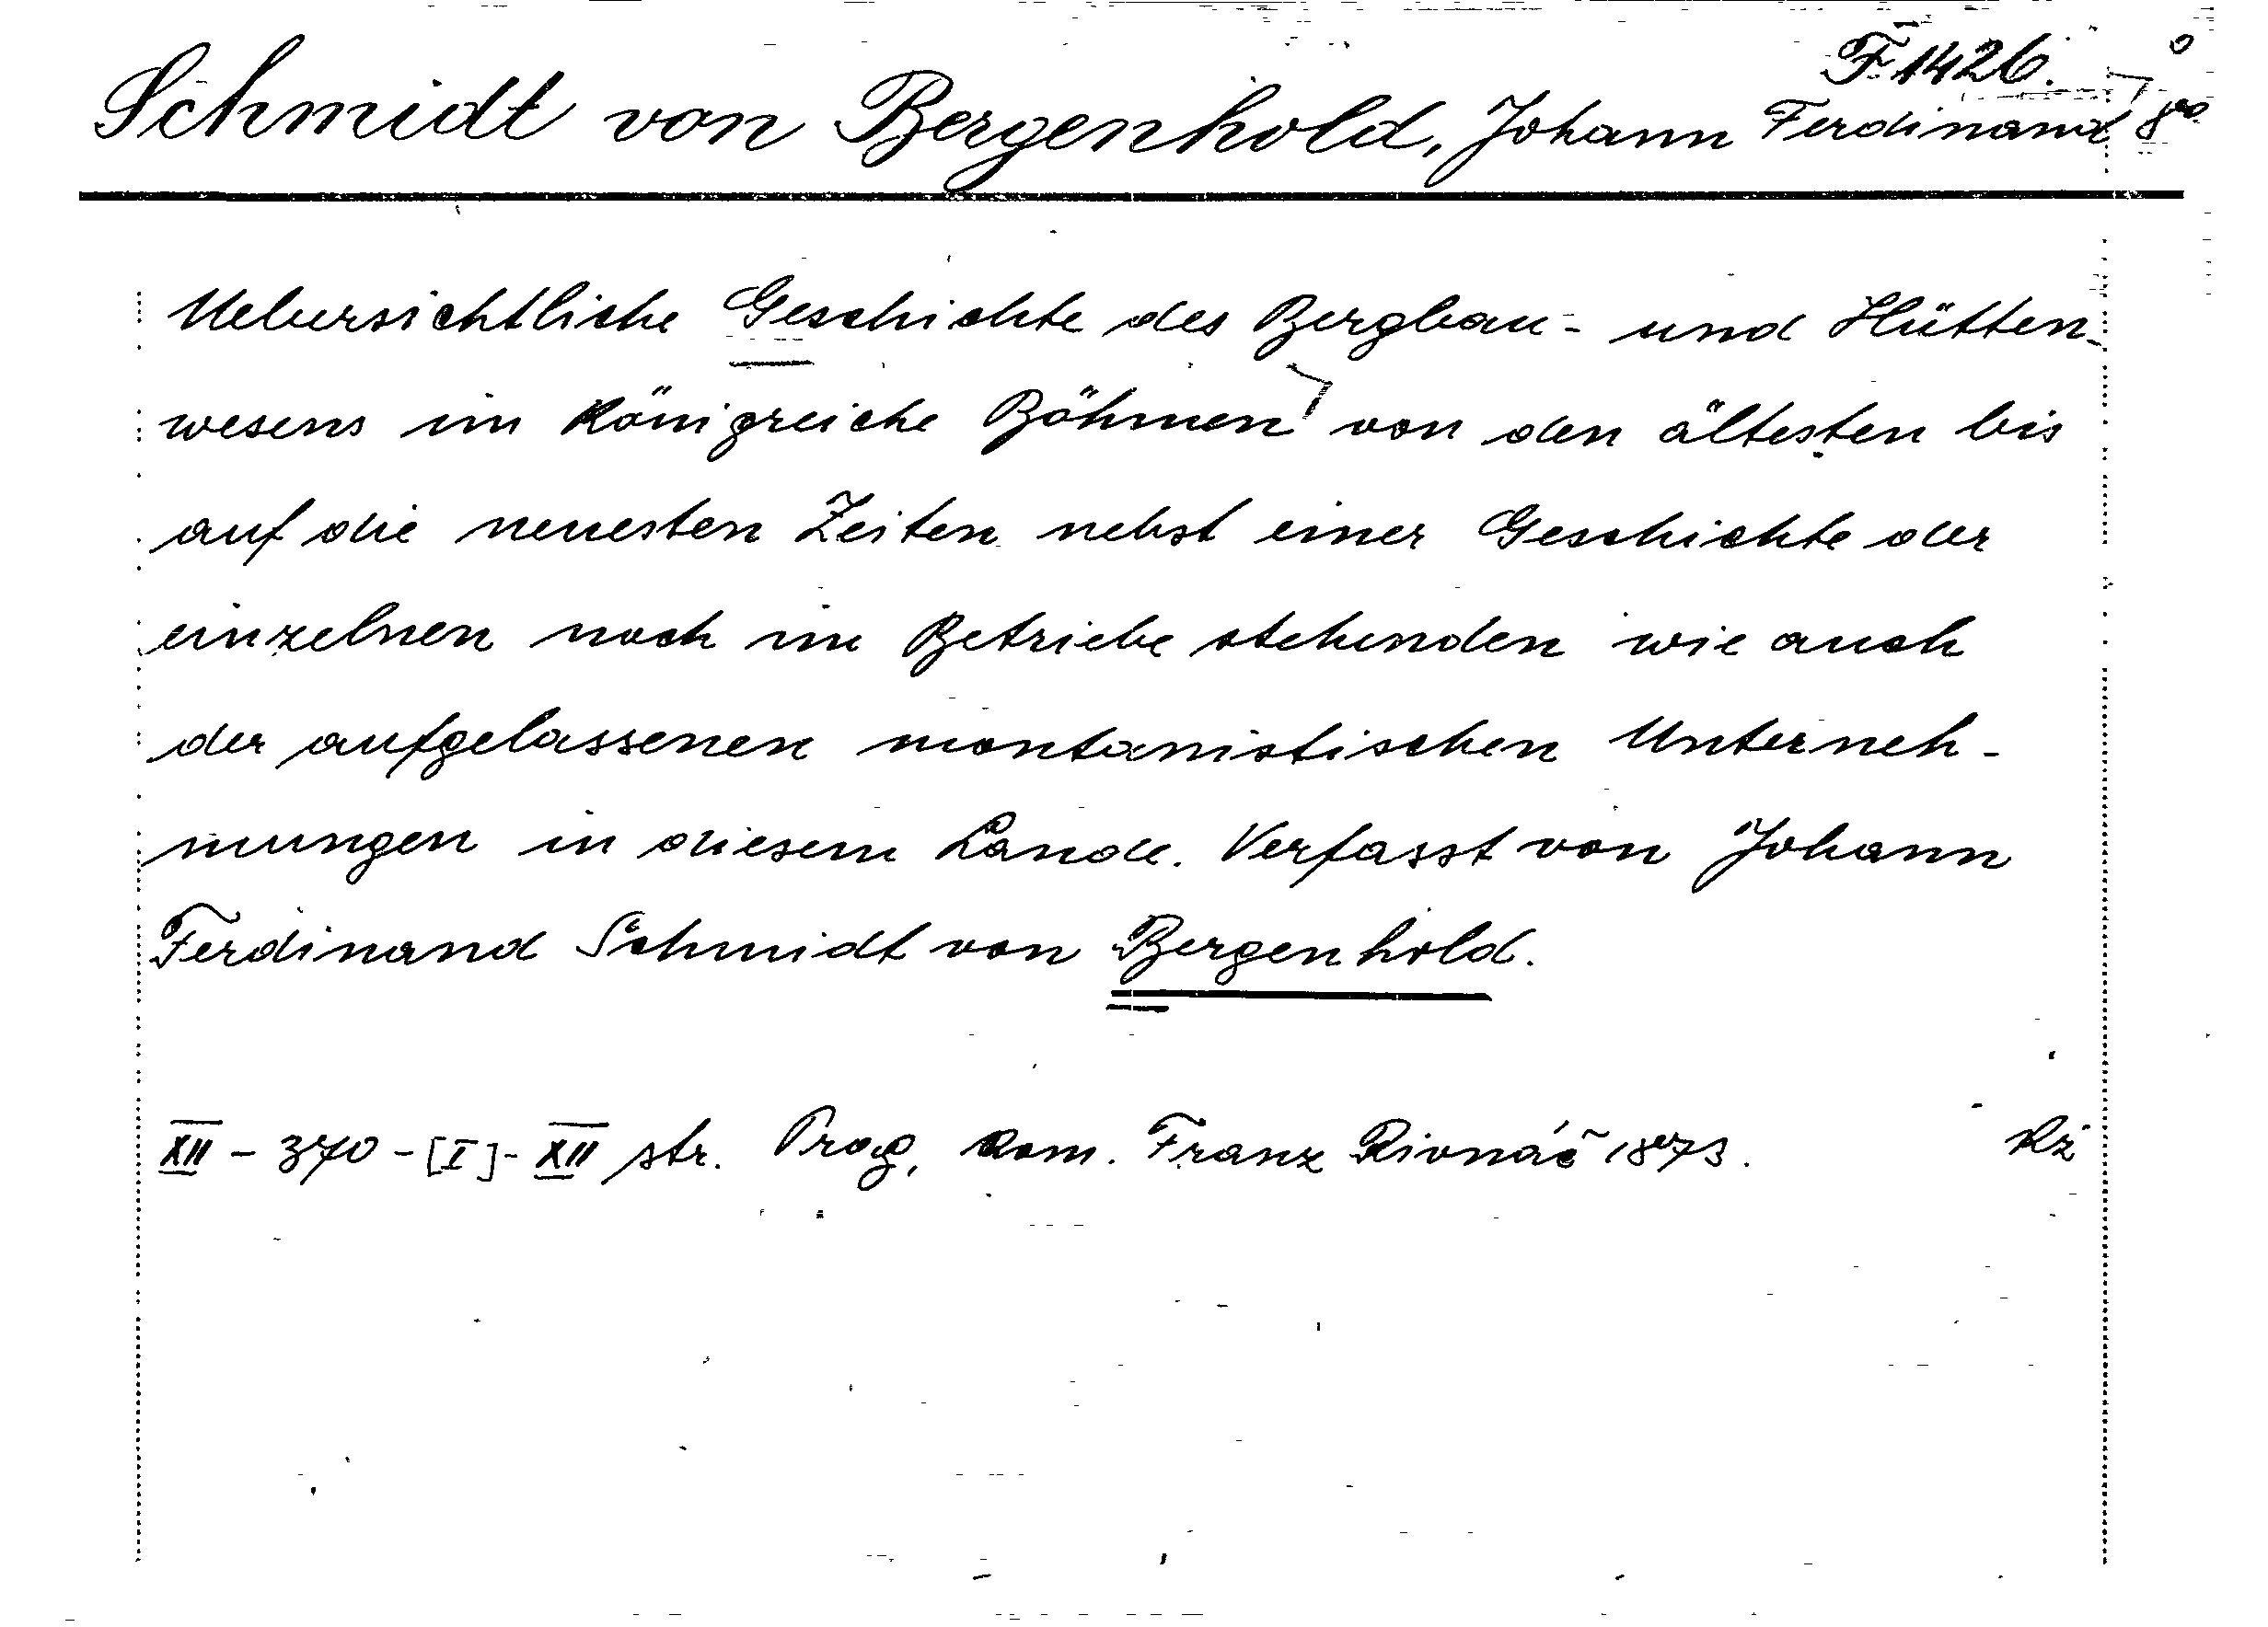 F 1426.
Schmidt von Bergenhold, Johann Ferdinand 8°
Uebersichtliche Geschichte des Bergbau- und Hütten-
wesens im Königreiche Böhmen von den ältesten bis
auf die neuesten Zeiten nebst einer Geschichte der
einzelnen noch im Betriebe stehenden wie auch
der aufgelassenen montanistischen Unterneh-
mungen in diesem Lande. Verfasst von Johann
Ferdinand Schmidt von Bergenhold.
XII - 370 - [I] - XII str. Prag, kom. Franz Rivnáč 1873.